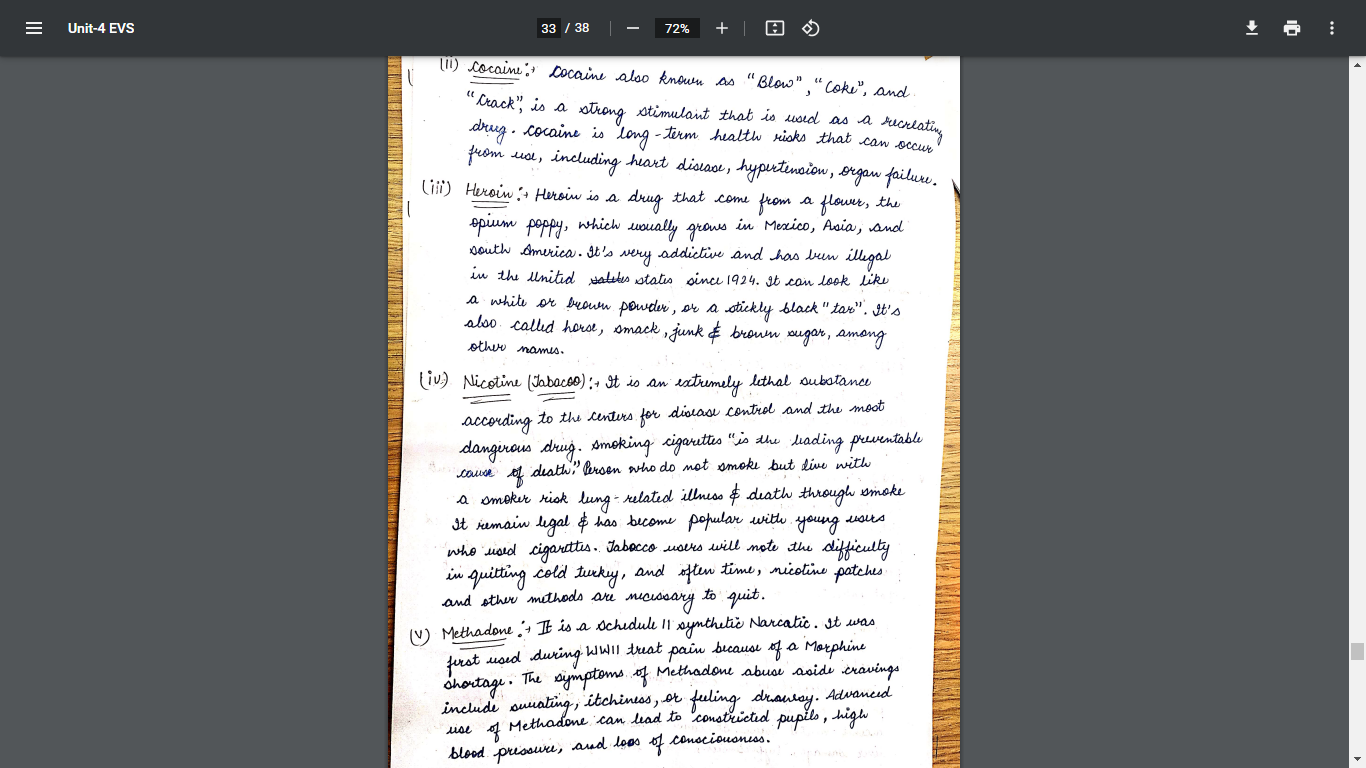 Unit-4 EVS
33 / 38
72%
(ii) Cocaine :→ Cocaine also known as "Blow", "Coke", and
"Crack", is a strong stimulant that is used as a recreating
drug. Cocaine is long-term health risks that can occur
from use, including heart disease, hypertension, organ failure.
(iii) Heroin :→ Heroin is a drug that come from a flower, the
opium poppy, which usually grows in Mexico, Asia, and
south America. It's very addictive and has been illegal
in the United states since 1924. It can look like
a white or brown powder, or a stickly black "tar". It's
also called horse, smack, junk & brown sugar, among
other names.
(iv) Nicotine (Tabacoo) :→ It is an extremely lethal substance
according to the centers for disease control and the most
dangerous drug. smoking cigarettes "is the leading preventable
cause of death." Person who do not smoke but live with
a smoker risk lung-related illness & death through smoke
It remain legal & has become popular with young users
who used cigarettes. Tabocco users will note the difficulty
in quitting cold turkey, and often time, nicotine patches
and other methods are necessary to quit.
(v) Methadone :→ It is a Schedule II synthetic Narcatic. It was
first used during WWII treat pain because of a Morphine
shortage. The symptoms of Methadone abuse aside cravings
include sweating, itchiness, or feeling drowsy. Advanced
use of Methadone can lead to constricted pupils, high
blood pressure, and loss of consciousness.